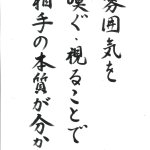 雰囲気を
嗅ぐ・視ることで
相手の本質が分か